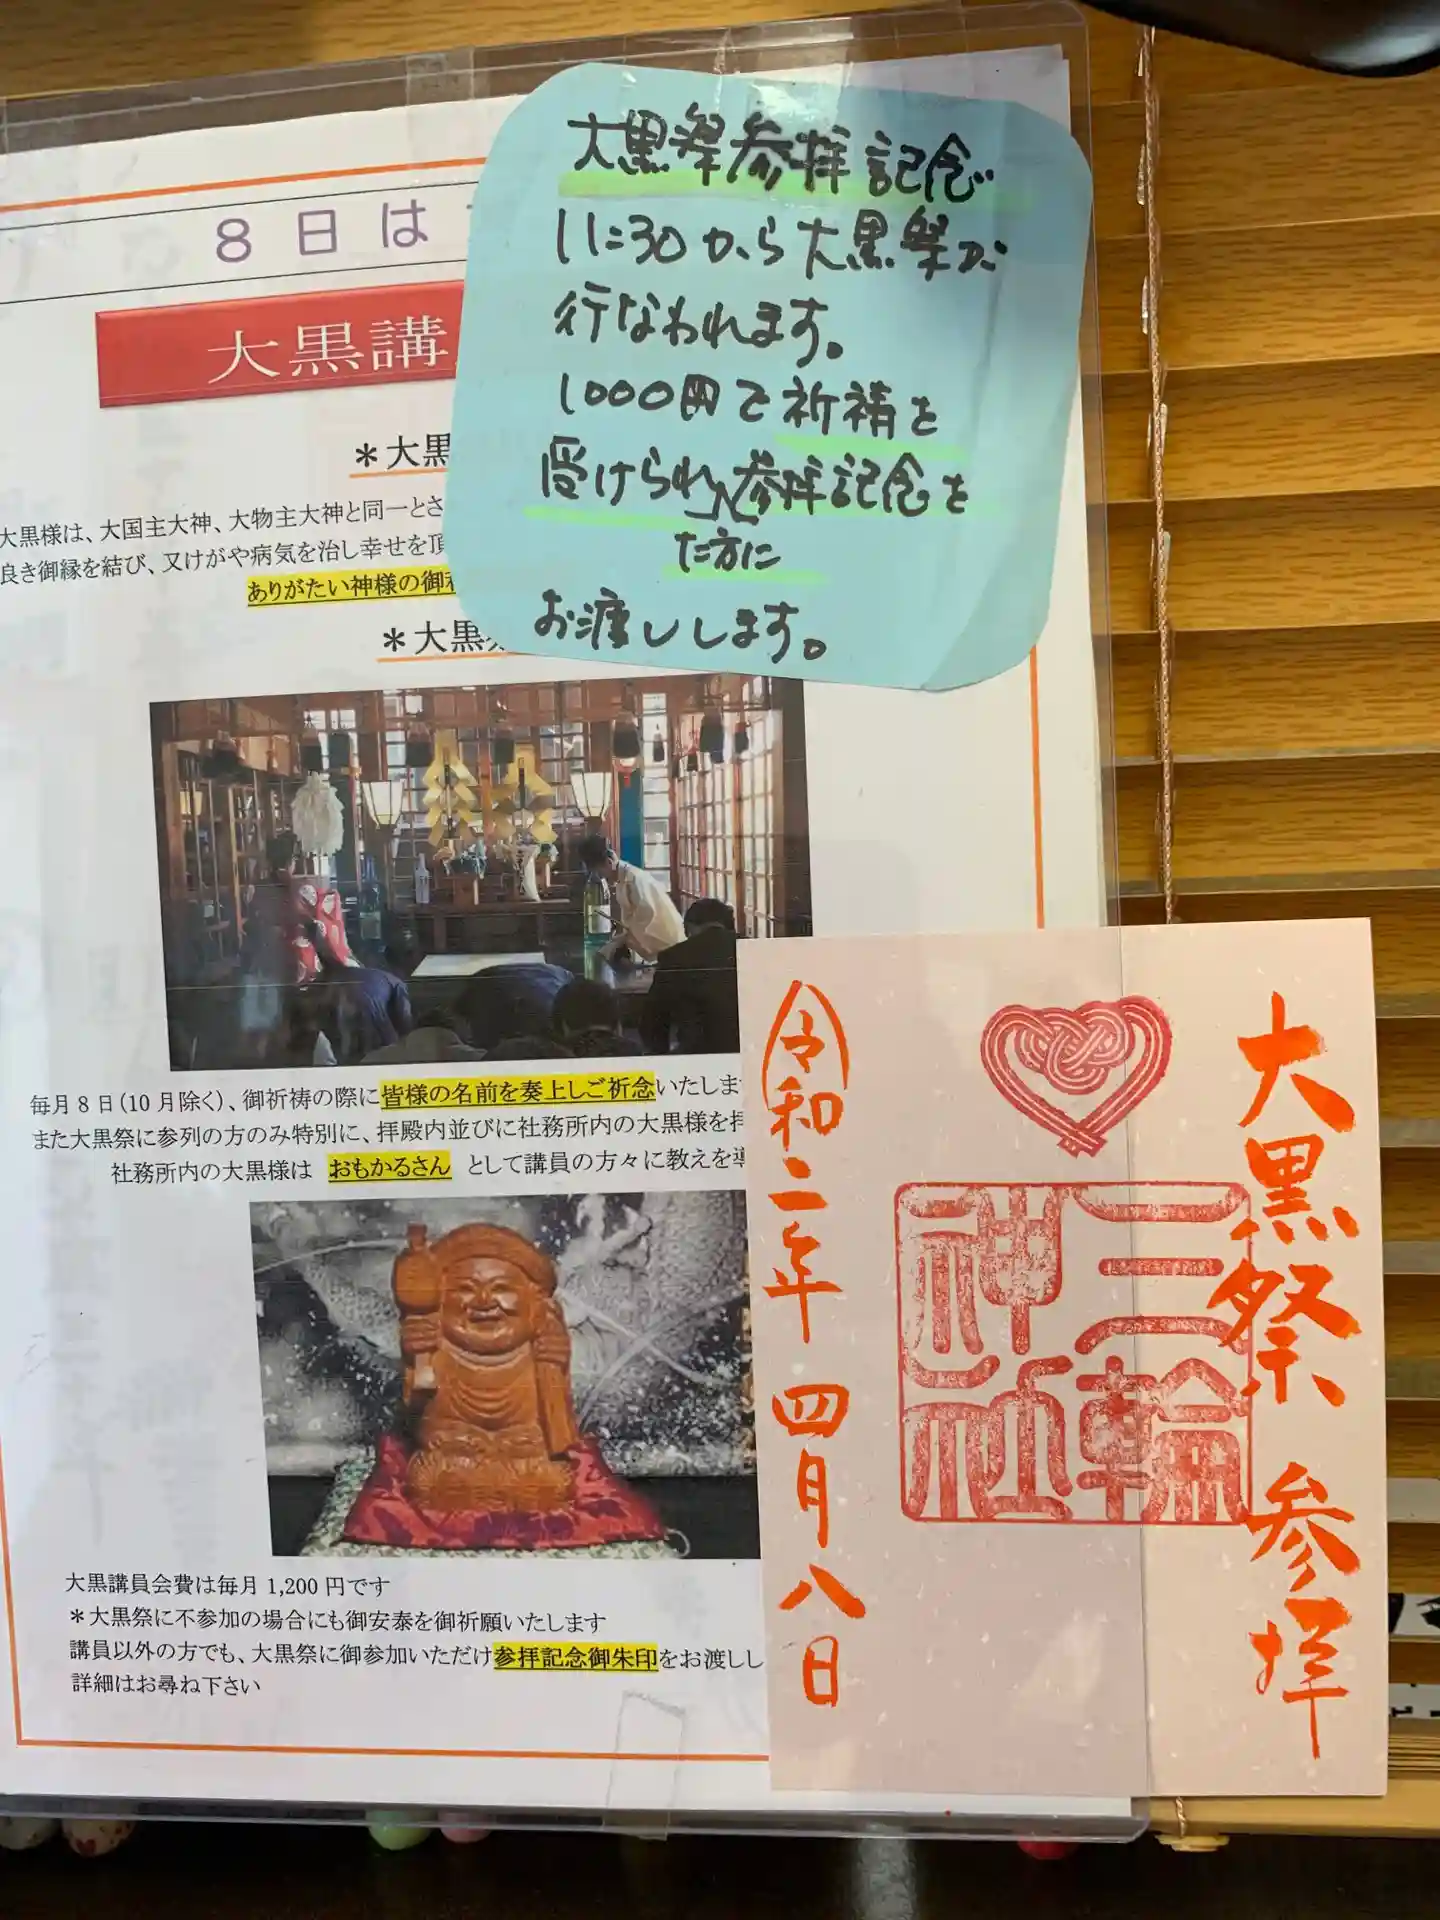 8日は
大黒講
大黒祭参拝記念
11:30から大黒祭が
行なわれます。
1000円で祈祷を
受けられた方に参拝記念を
お渡しします。
＊大黒
大黒様は、大国主大神、大物主大神と同一とさ
良き御縁を結び、又けがや病気を治し幸せを頂
ありがたい神様の御
＊大黒祭
毎月8日(10月除く)、御祈祷の際に皆様の名前を奏上しご祈念いたしま
また大黒祭に参列の方のみ特別に、拝殿内並びに社務所内の大黒様を拝
社務所内の大黒様は おもかるさん として講員の方々に教えを導
大黒講員会費は毎月1,200円です
＊大黒祭に不参加の場合にも御安泰を御祈願いたします
講員以外の方でも、大黒祭に御参加いただけ参拝記念御朱印をお渡しし
詳細はお尋ね下さい
大黒祭 参拝
三輪
神社
令和二年 四月八日